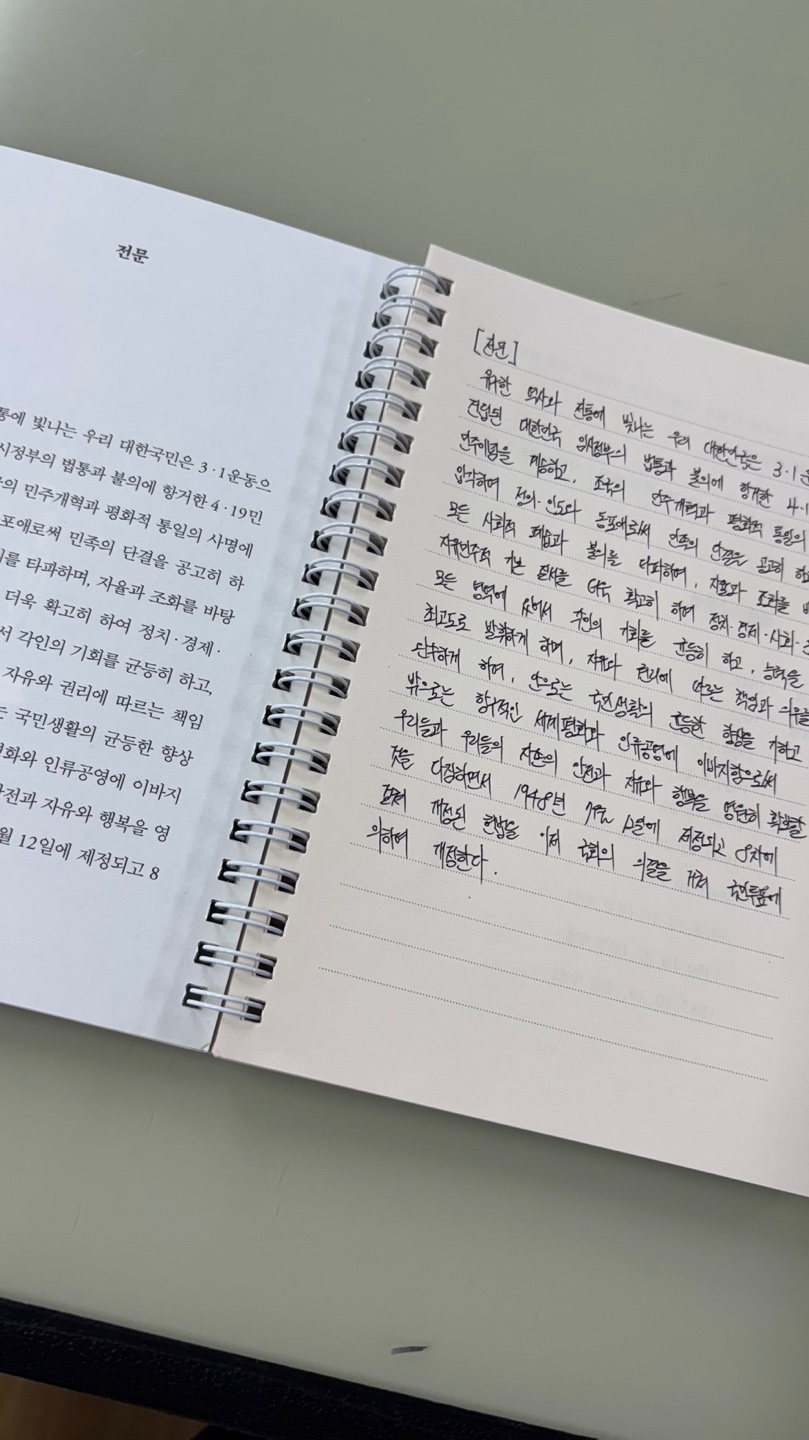 전문
통에 빛나는 우리 대한국민은 3·1운동으
시정부의 법통과 불의에 항거한 4·19민
의 민주개혁과 평화적 통일의 사명에
포애로써 민족의 단결을 공고히 하
를 타파하며, 자율과 조화를 바탕
더욱 확고히 하여 정치·경제·
서 각인의 기회를 균등히 하고,
자유와 권리에 따르는 책임
는 국민생활의 균등한 향상
평화와 인류공영에 이바지
안전과 자유와 행복을 영
월 12일에 제정되고 8
[전문]
유구한 역사와 전통에 빛나는 우리 대한민국은 3·1운
건립된 대한민국 임시정부의 법통과 불의에 항거한 4·1
민주이념을 계승하고, 조국의 민주개혁과 평화적 통일의
입각하여 정의·인도와 동포애로써 민족의 단결을 공고히 하
모든 사회적 폐습과 불의를 타파하며, 자율과 조화를 바
자유민주적 기본 질서를 더욱 확고히 하여 정치·경제·사회·
모든 영역에 있어서 각인의 기회를 균등히 하고, 능력을
최고도로 발휘하게 하며, 자유와 권리에 따르는 책임과 의무를
완수하게 하여, 안으로는 국민생활의 균등한 향상을 기하고
밖으로는 항구적인 세계평화와 인류공영에 이바지함으로써
우리들과 우리들의 자손의 안전과 자유와 행복을 영원히 확보할
것을 다짐하면서 1948년 7월 12일에 제정되고 8차에
걸쳐 개정된 헌법을 이제 국회의 의결을 거쳐 국민투표에
의하여 개정한다.